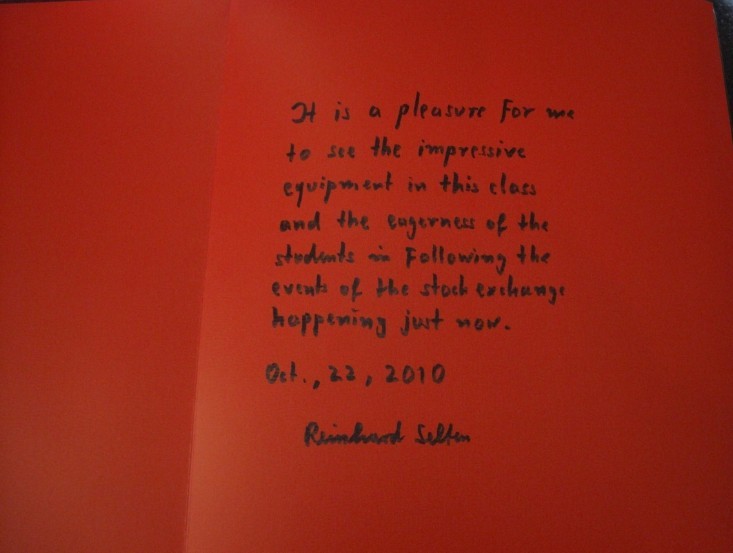 It is a pleasure for me
to see the impressive
equipment in this class
and the eagerness of the
students in Following the
events of the stock exchange
happening just now.
Oct., 22, 2010
Reinhard Selten